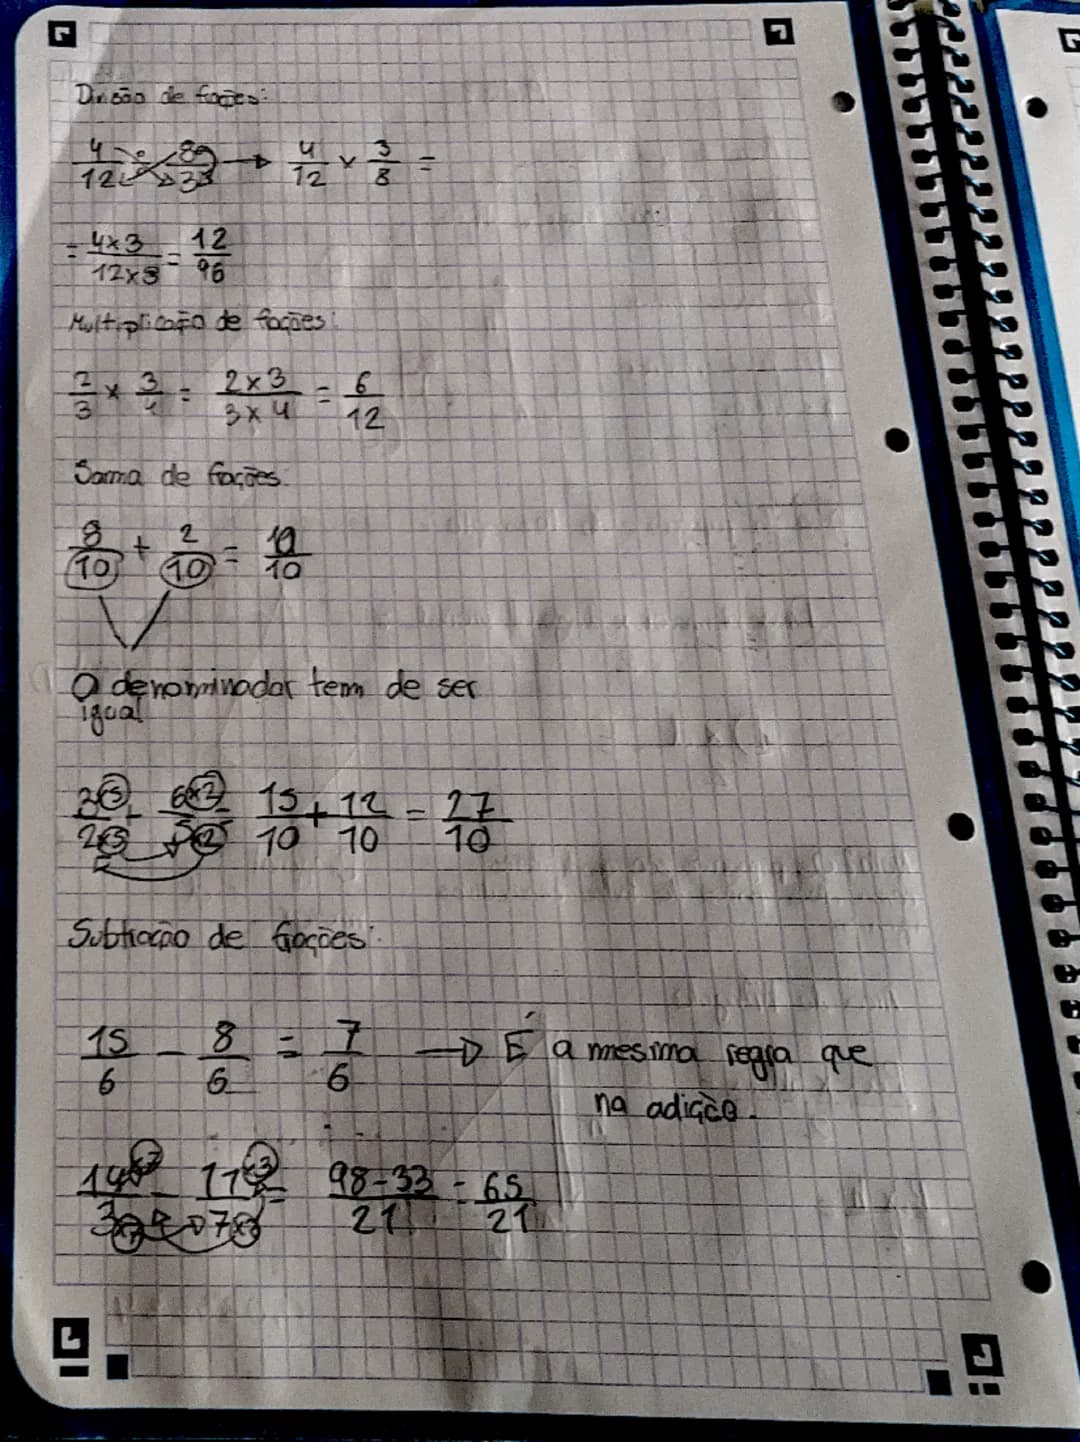 Divisão de fações:
4/12 ÷ 8/3 → 4/12 × 3/8 =
= 4×3/12×8 = 12/96
Multiplicação de fações:
2/3 × 3/4 = 2×3/3×4 = 6/12
Soma de frações:
8/10 + 2/10 = 10/10
O denominador tem de ser
igual
3×5/2×5 + 6×2/5×2 = 15/10 + 12/10 = 27/10
Subtração de frações:
15/6 - 8/6 = 7/6 → É a mesma regra que
na adição.
14×7/3×7 - 11×3/7×3 = 98-33/21 = 65/21